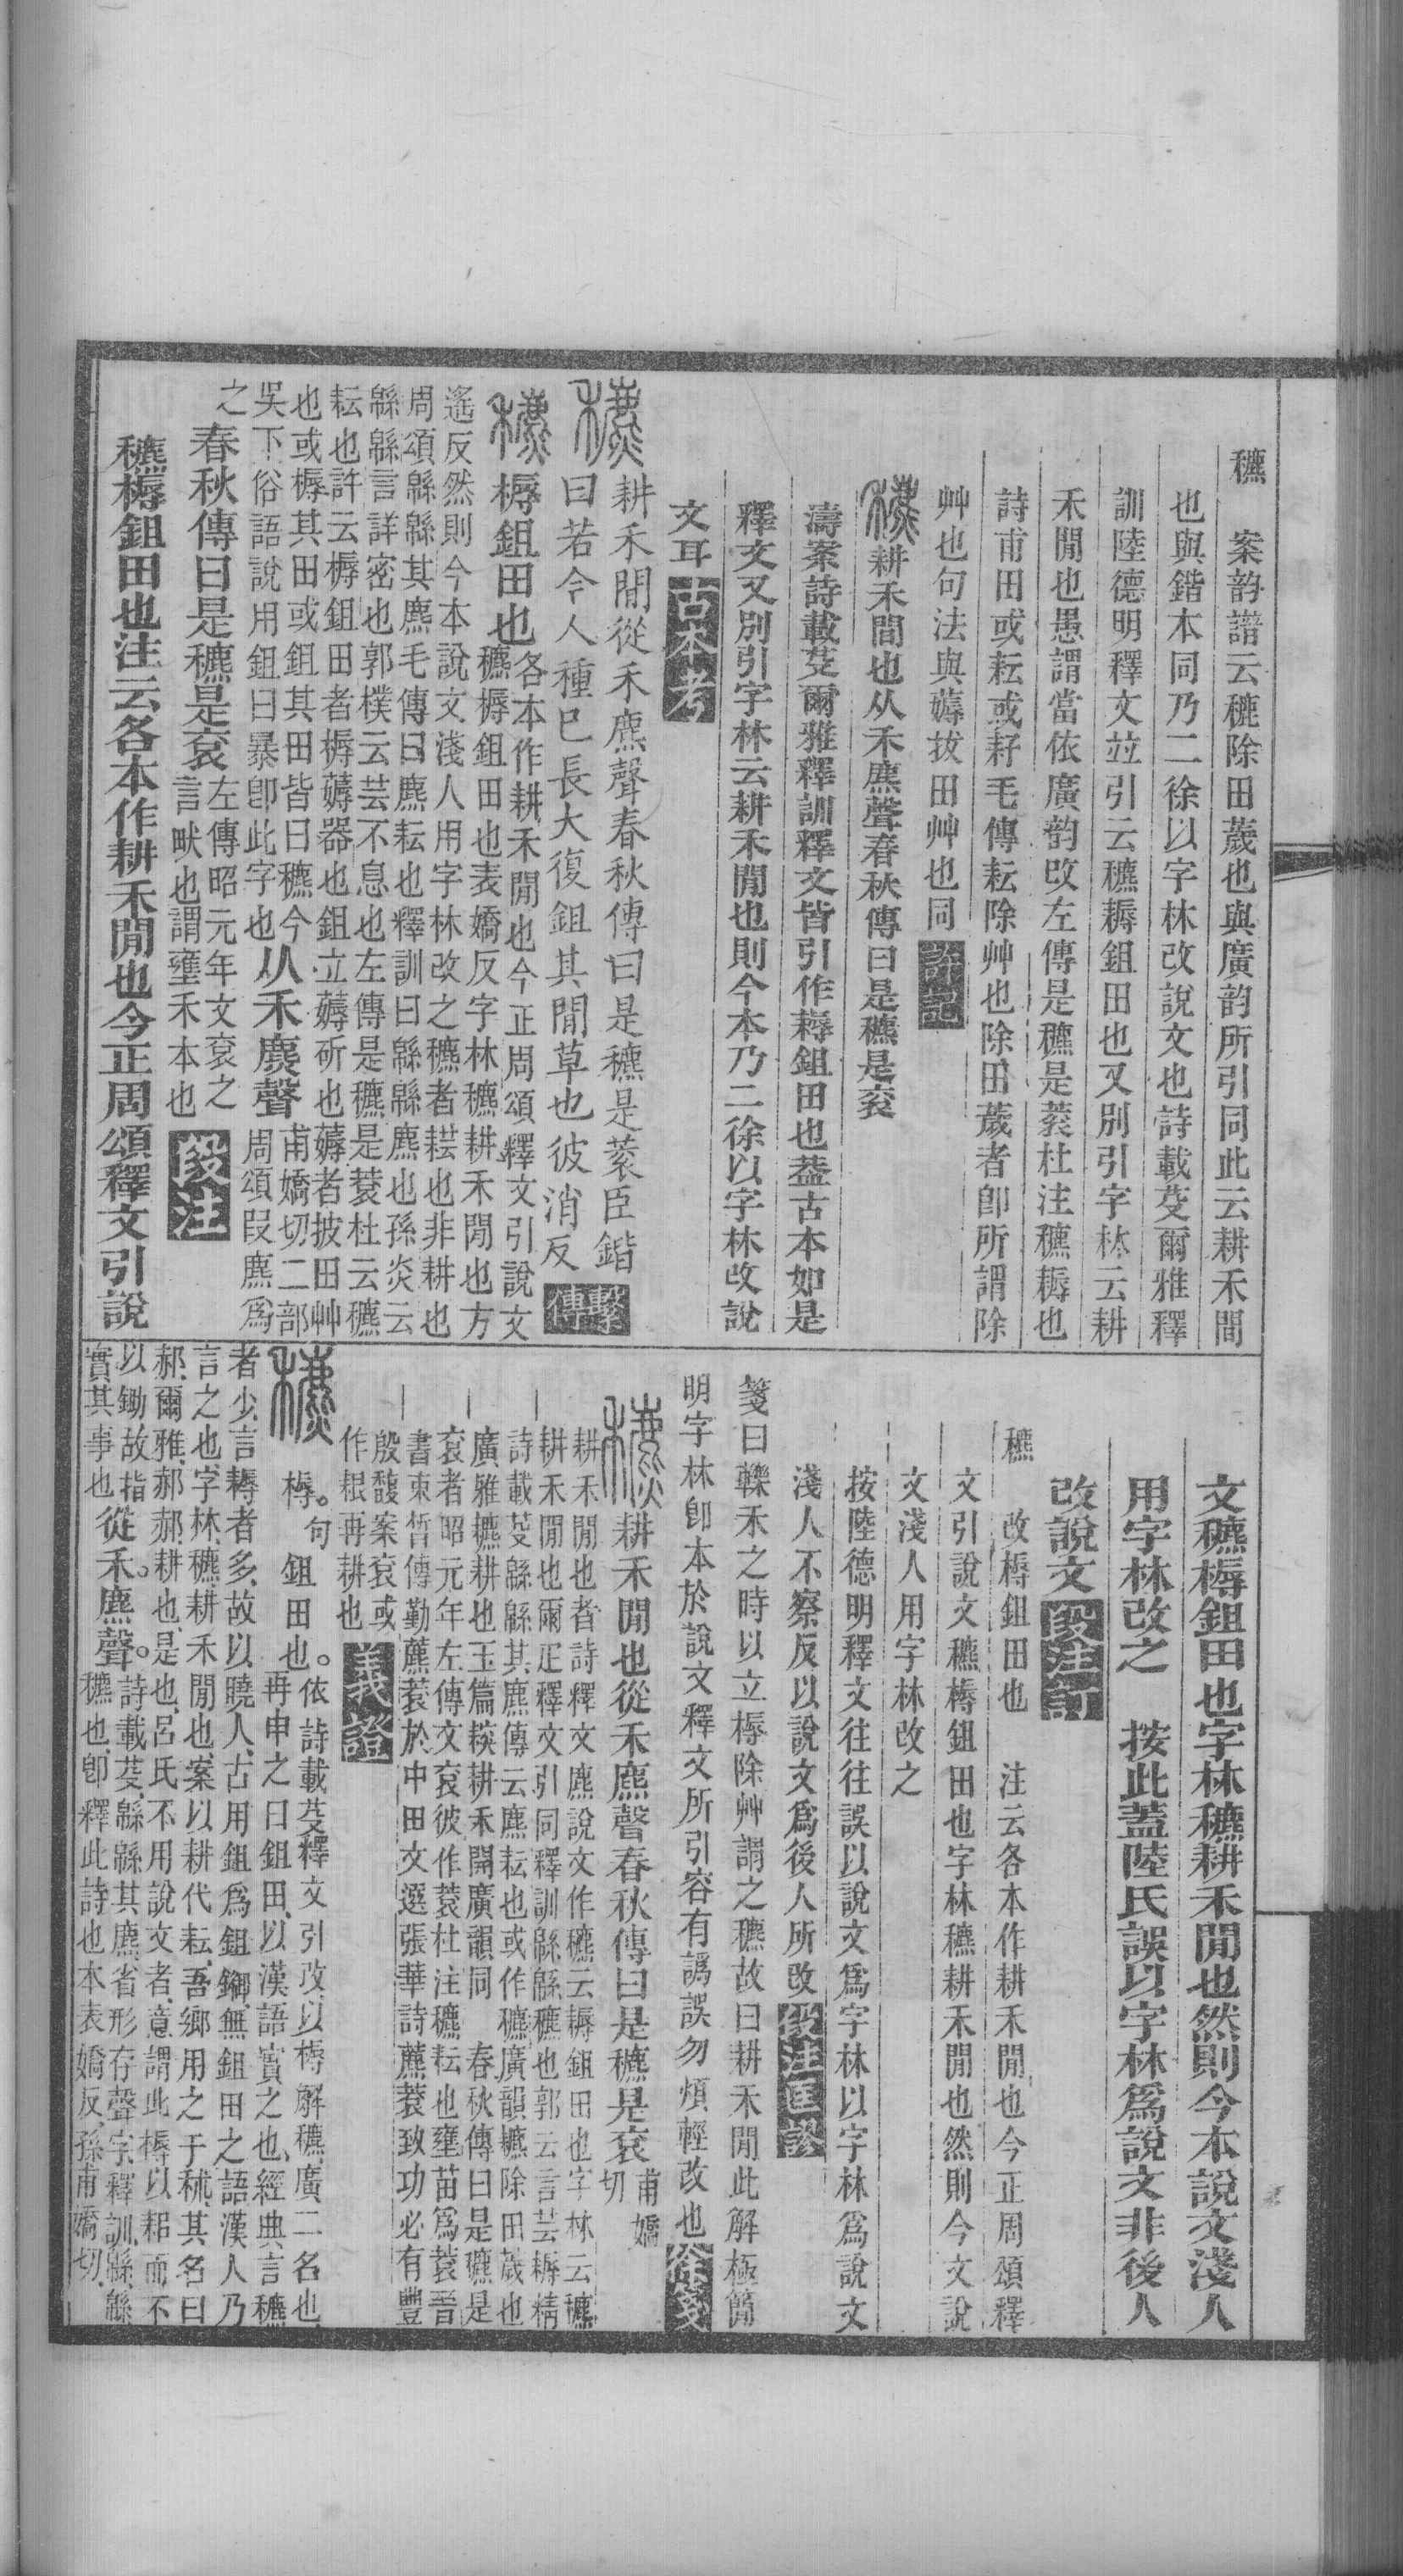 穮　案韵譜云穮除田薉也與廣韵所引同此云耕禾間
也與鍇本同乃二徐以字林改說文也詩載芟爾雅釋
訓陸德明釋文竝引云穮耨鉏田也又別引字林云耕
禾閒也愚謂當依廣韵改左傳是穮是蓘杜注穮耨也
詩甫田或耘或耔毛傳耘除艸也除田薉者卽所謂除
艸也句法與薅拔田艸也同
耕禾間也从禾麃聲春秋傳曰是穮是衮
濤案詩載芟爾雅釋訓釋文皆引作耨鉏田也葢古本如是
釋文又別引字林云耕禾閒也則今本乃二徐以字林改說
文耳 古本考
耕禾間從禾麃聲春秋傳曰是穮是蓘臣鍇
曰若今人種巳長大復鉏其間草也彼消反 繫傳
槈鉏田也
各本作耕禾閒也今正周頌釋文引說文
穮槈鉏田也表嬌反字林穮耕禾閒也方
遙反然則今本說文淺人用字林改之穮者耘也非耕也
周頌緜緜其麃毛傳曰麃耘也釋訓曰緜緜麃也孫炎云
緜緜言詳密也郭樸云芸不息也左傳是穮是蓘杜云穮
耘也許云槈鉏田者槈薅器也鉏立薅斫也薅者披田艸
也或槈其田或鉏其田皆曰穮今
吳下俗語說用鉏曰暴卽此字也
从禾麃聲
甫嬌切二部
周頌叚麃爲
之
春秋傳曰是穮是衮
左傳昭元年文衮之
言畎也謂壅禾本也
段注
穮槈鉏田也注云各本作耕禾閒也今正周頌釋文引說
文穮槈鉏田也字林穮耕禾閒也然則今本說文淺人
用字林改之　按此蓋陸氏誤以字林爲說文非後人
改說文 段注訂
穮　改槈鉏田也　注云各本作耕禾閒也今正周頌釋
文引說文穮槈鉏田也字林穮耕禾閒也然則今文說
文淺人用字林改之
按陸德明釋文往往誤以說文爲字林以字林爲說文
淺人不察反以說文爲後人所改 段注匡謬
箋曰轢禾之時以立槈除艸謂之穮故曰耕禾閒此解極簡
明字林卽本於說文釋文所引容有譌誤勿煩輕改也 徐箋
耕禾閒也從禾麃聲春秋傳曰是穮是衮
甫嬌
切
耕禾閒也者詩釋文麃說文作穮云耨鉏田也字林云穮
耕禾閒也爾疋釋文引同釋訓緜緜穮也郭云言芸耨精
詩載芟緜緜其麃傳云麃耘也或作穮廣韻穮除田薉也
廣雅穮耕也玉篇䅘耕禾閒廣韻同　春秋傳曰是穮是
衮者昭元年左傳文衮彼作蓘杜注穮耘也壅苗爲蓘晉
書束皙傳勤藨蓘於中田文選張華詩藨蓘致功必有豐
殷馥案衮或
作䅵再耕也
義證
槈。句鉏田也。
依詩載芟釋文引改以槈解穮廣二名也
再申之曰鉏田以漢語實之也經典言穮
者少言耨者多故以曉人古用鉏爲鉏鋤無鉏田之語漢人乃
言之也字林穮耕禾閒也案以耕代耘吾鄉用之于秫其名曰
郝爾雅郝郝耕也是也呂氏不用說文者意謂此槈以耜而不
以鋤故指
實其事也
從禾麃聲。
詩載芟緜緜其麃省形存聲字釋訓緜緜
穮也卽釋此詩也本表嬌反孫甫嬌切